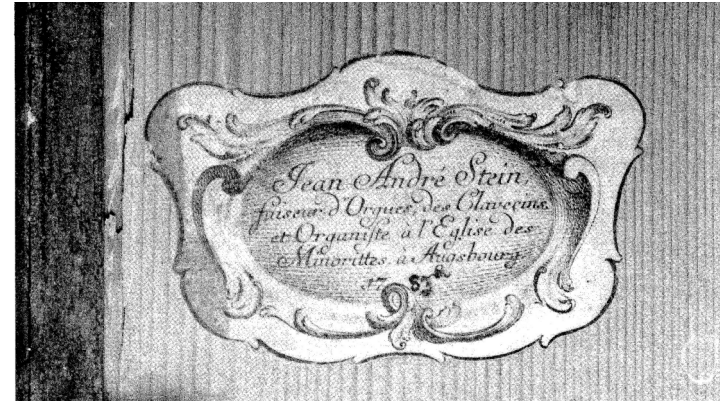 Jean André Stein,
faiseur d'Orgues, des Claveçins
et Organiste à l'Eglise des
Minorittes à Augsbourg
1783